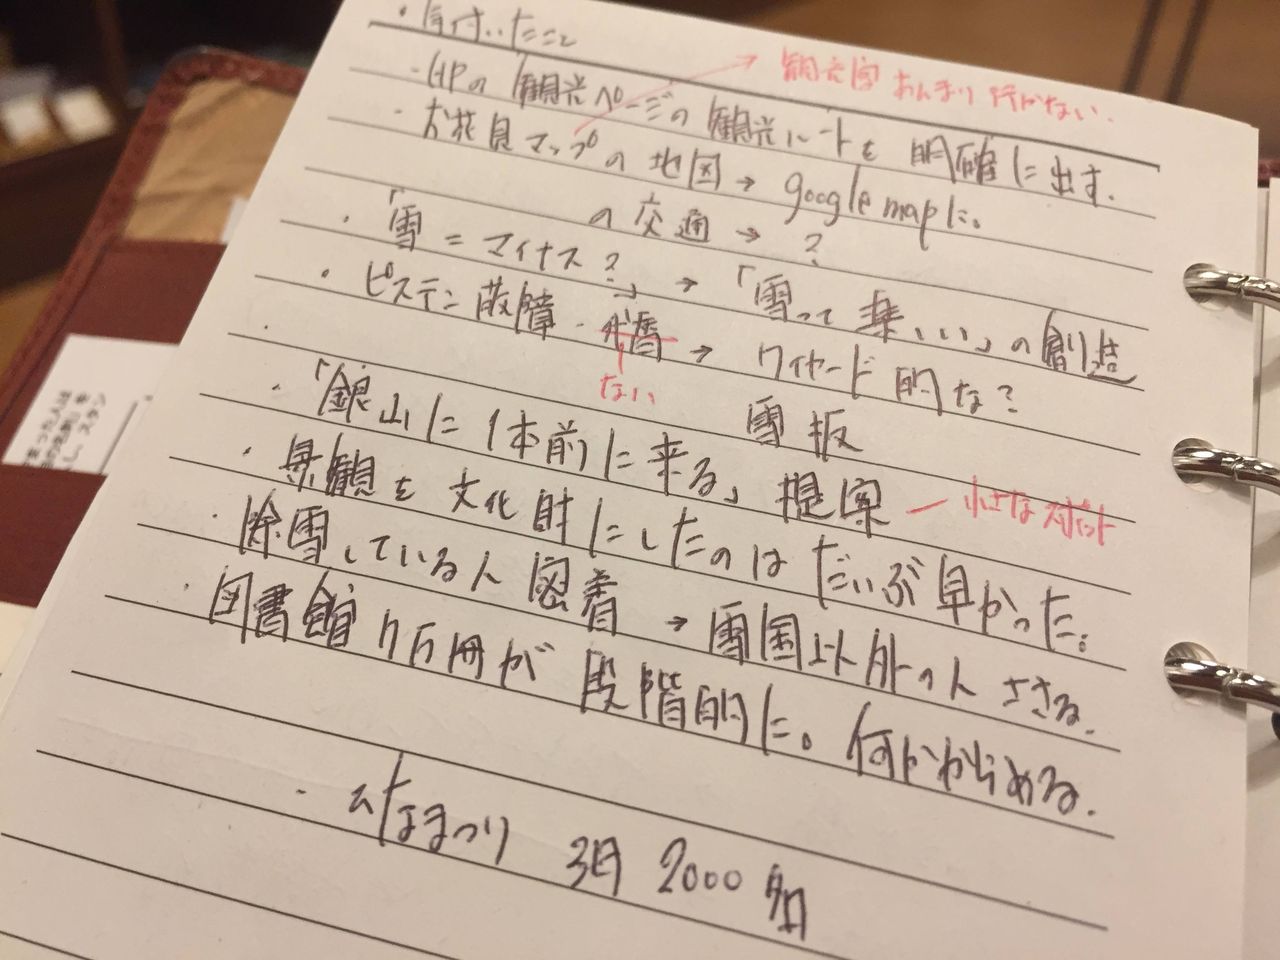 ・気付いたこと
観光客あんまり行かない.
・HPの観光ページの観光ルートを明確に出す.
・お花見マップの地図→google mapに。
の交通→?
・「雪=マイナス?」→「雪って楽しい」の創造
・ピステン
→ワイヤード的な?
ない
雪板
・「銀山に1本前に来る」提案
小さなスポット
・景観を文化財にしたのはだいぶ早かった。
・除雪している人密着→雪国以外の人ささる.
・図書館 7万冊が段階的に。何かからめる.
・ひなまつり 3月 2000